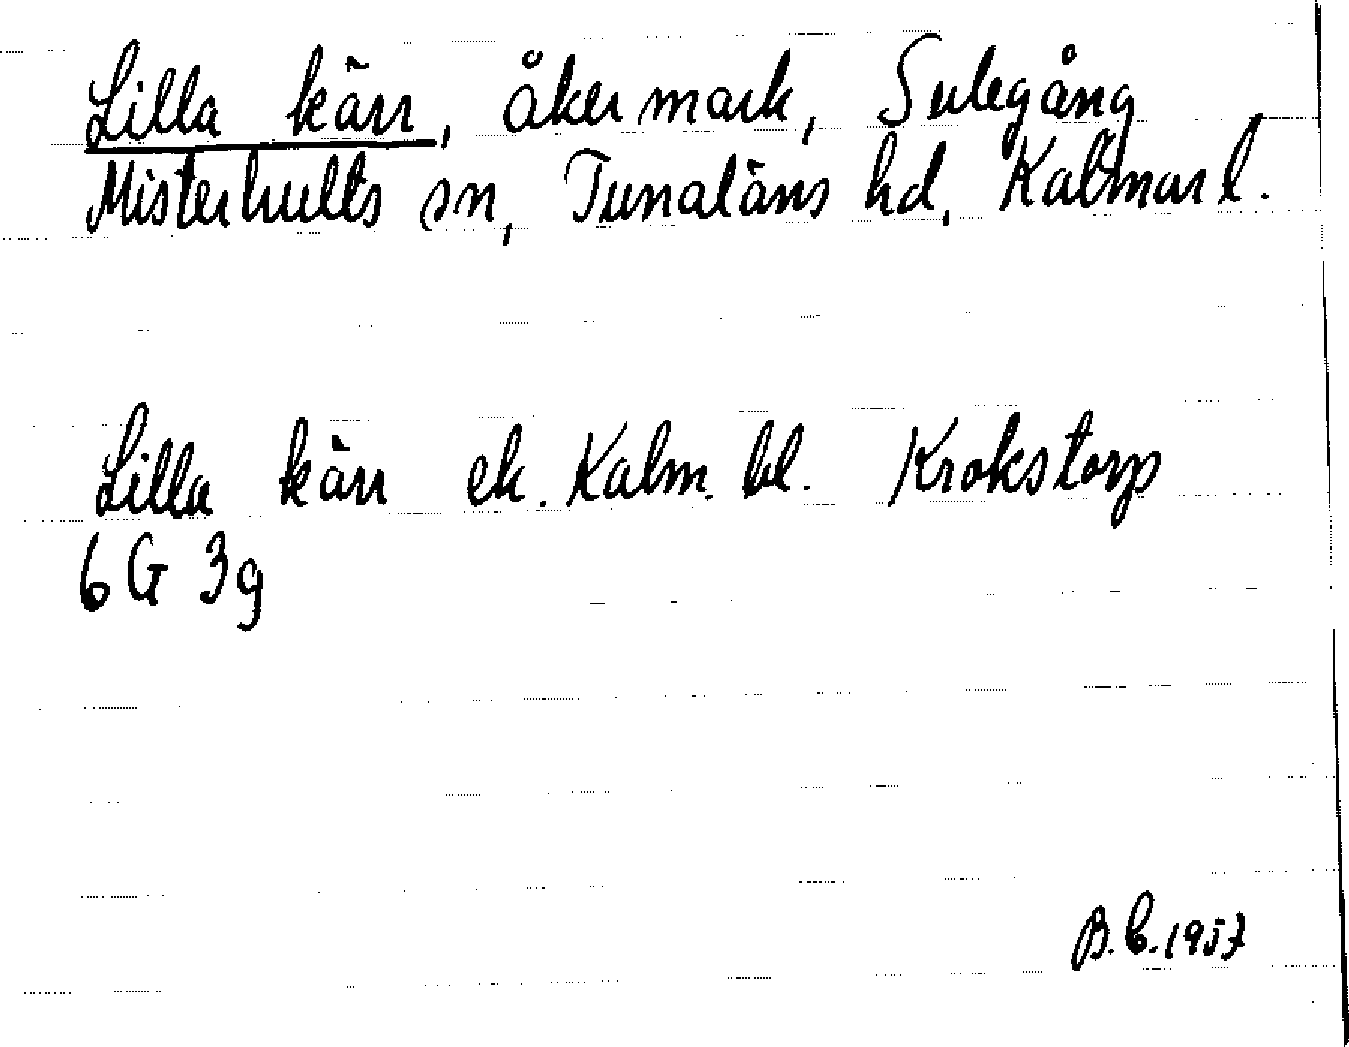 Lilla kärr, åkermark, Sulegång
Misterhults sn, Tunaläns hd, Kalmar l.
Lilla kärr ek. Kalm. bl. Krokstorp
6G 3g
B.C. 1957